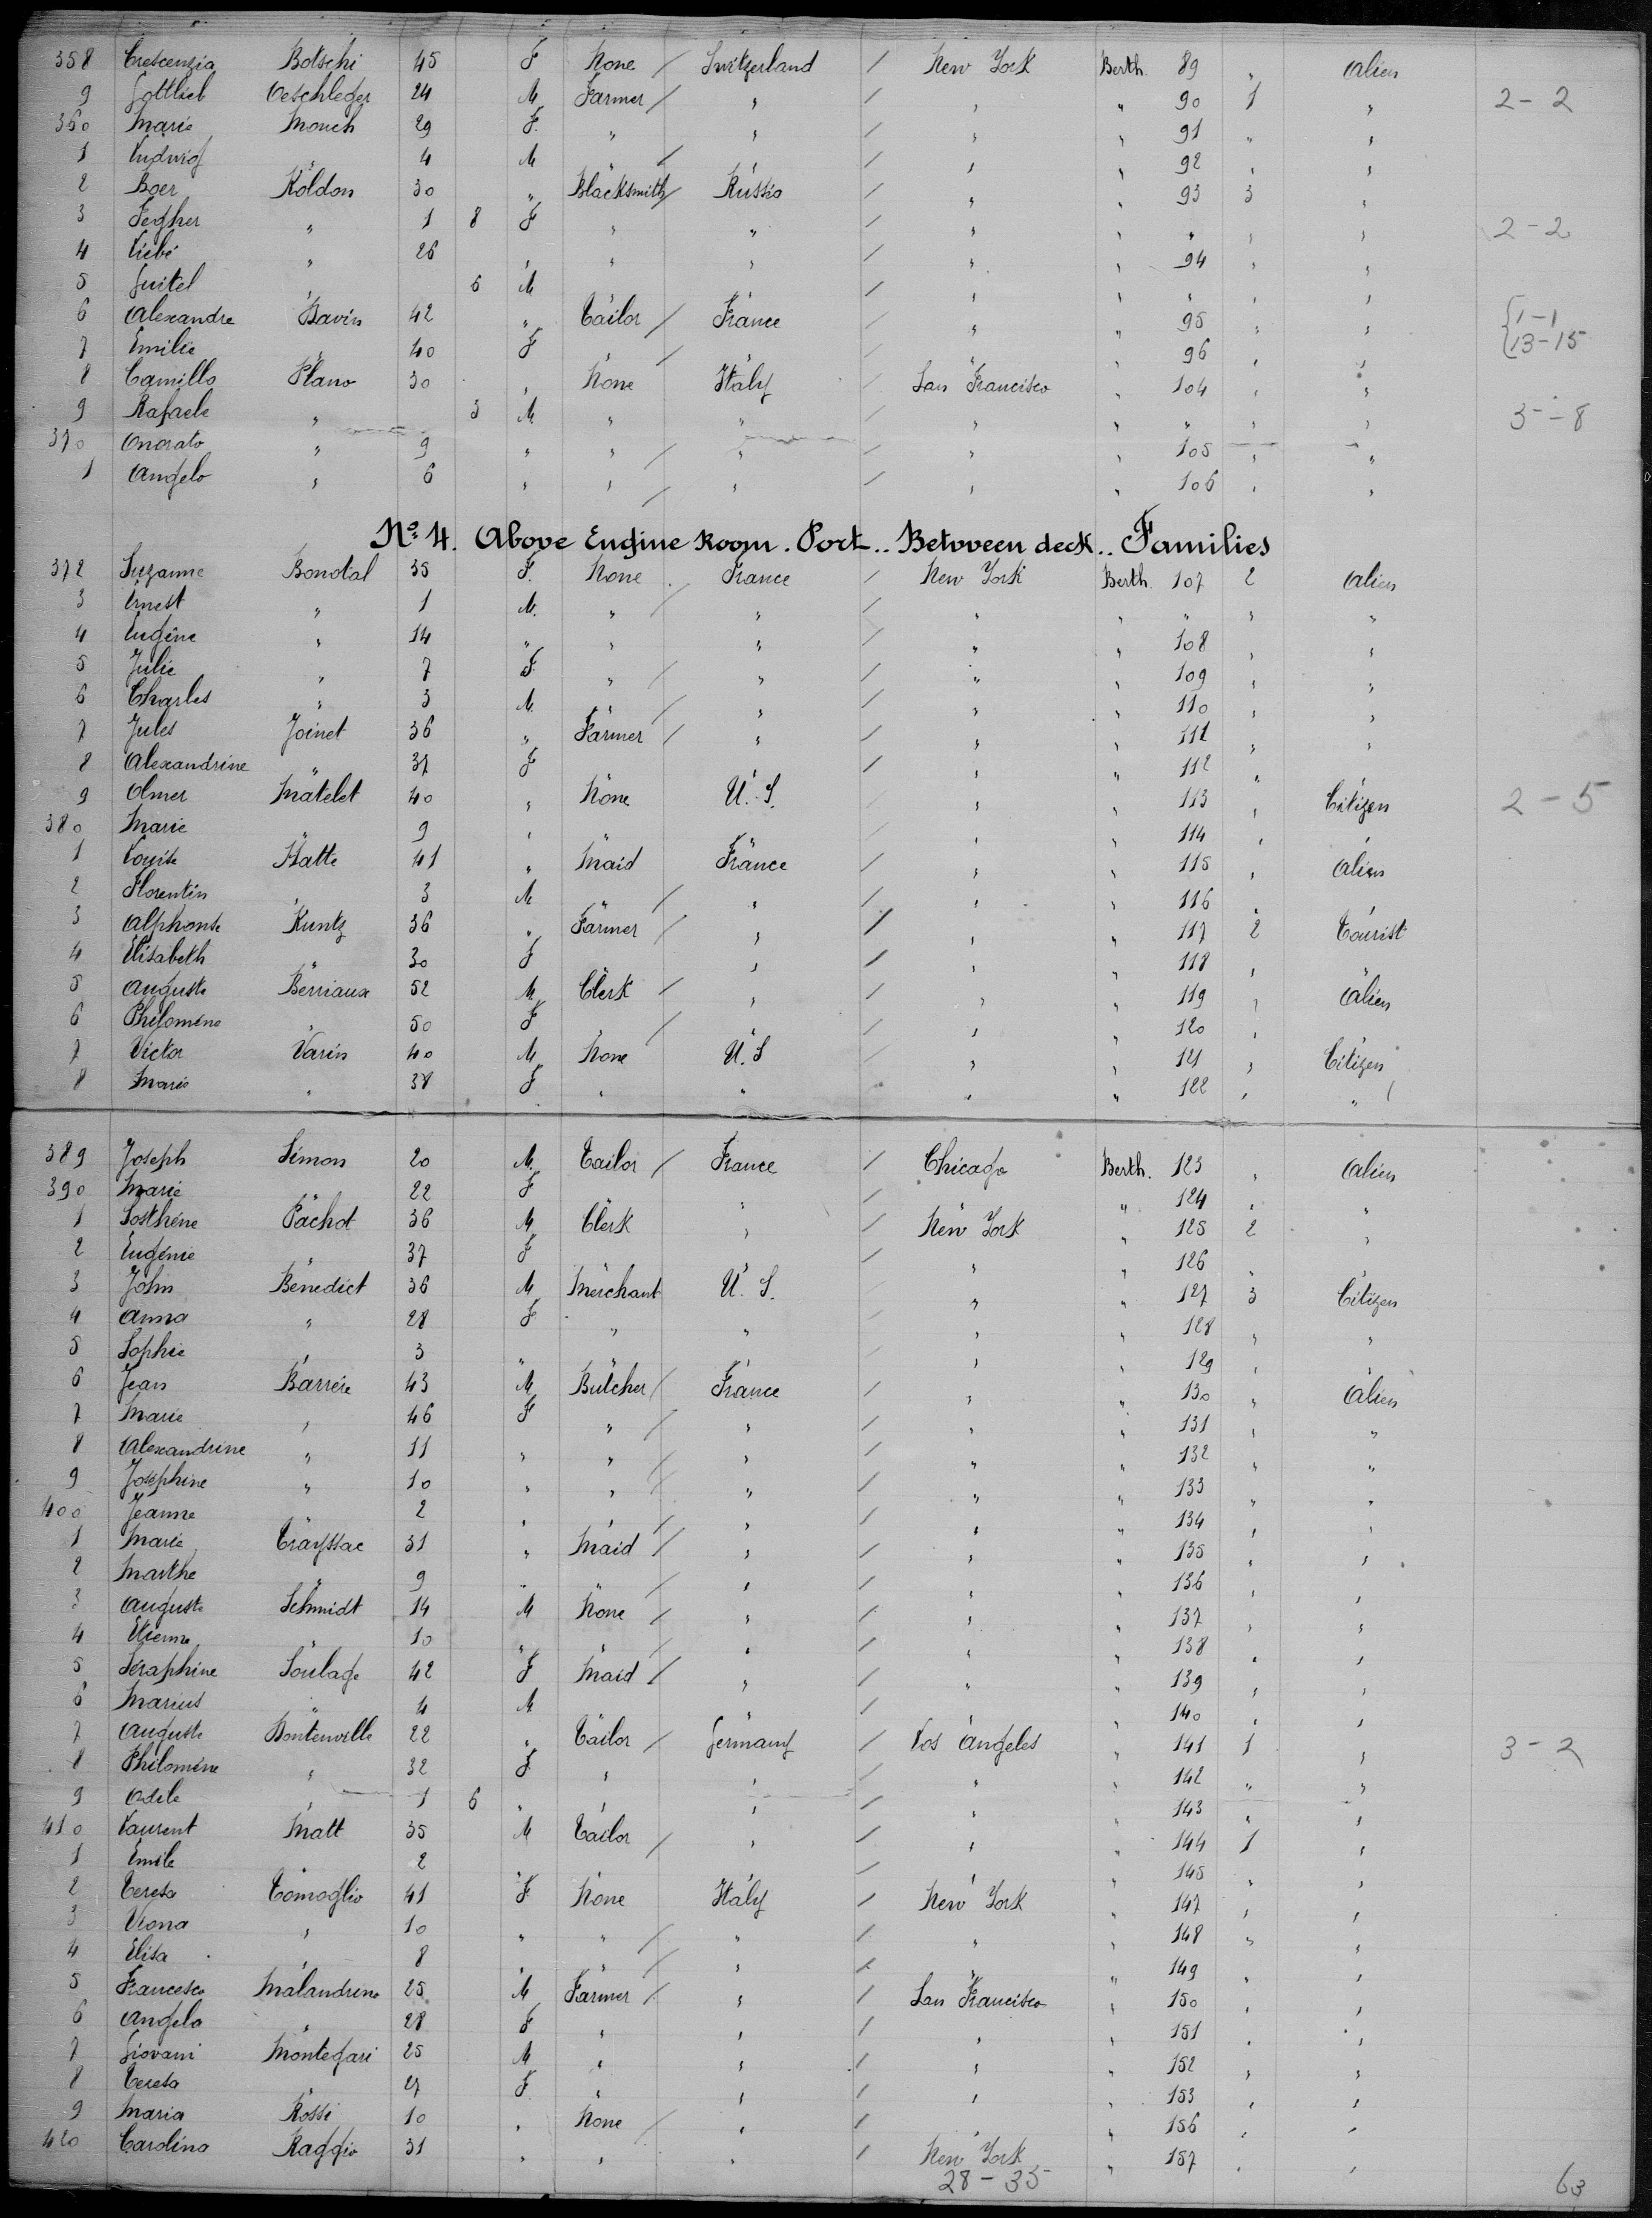 358 Crescenzia Botschi 45 F None / Switzerland / New York Berth. 89 " Alien
9 Gottlieb Oeschleger 24 M Farmer / " / " " 90 1 " 2-2
360 Marie Monch 29 F. " " / " " 91 " "
1 Ludwig " 4 M " / " / " " 92 " "
2 Boer Koldon 30 " Blacksmith / Russia " " 93 3 "
3 Fegher " 1 8 F " " " " " " " 2-2
4 Liebé " 26 " " " " " 94 " "
5 Guitel " 6 M " " / " " " " "
6 Alexandre Bavin 42 " Tailor / France / " " 95 " " 1-1
7 Emilie " 40 F " / " / " " 96 " " 13-15
8 Camillo Plano 30 " None Italy / San Francisco " 104 " "
9 Rafaele " 3 M " " " " " " " 3--8
370 Onorato " 9 " " / " " " 105 " "
1 Angelo " 6 " " / " / " " 106 " "
No. 4. Above Engine Room. Port.. Between deck.. Families
372 Suzanne Bonotal 35 F. None France / New York Berth. 107 2 Alien
3 Ernest " 1 M. " / " / " " " " "
4 Eugène " 14 " " " / " " 108 " "
5 Julie " 7 F. " / " / " " 109 " "
6 Charles " 3 M. " / " / " " 110 " "
7 Jules Joinet 36 " Farmer / " / " " 111 " "
8 Alexandrine " 37 F " " / " " 112 " "
9 Olmer Matelet 40 " None U. S. " " 113 " Citizen 2-5
380 Marie " 9 " " " " " 114 " "
1 Louise Hatte 41 " Maid France / " " 115 " Alien
2 Florentin " 3 M " / " / " " 116 " "
3 Alphonse Kuntz 36 " Farmer / " / " " 117 2 Tourist
4 Elisabeth " 30 F " " / " " 118 " "
5 Auguste Berriaux 52 M Clerk / " / " " 119 " Alien
6 Philomène " 50 F / " / " " 120 "
7 Victor Varin 40 M None U. S " " 121 " Citizen
8 Marie " 38 F " " " " 122 " "
389 Joseph Simon 20 M. Tailor / France / Chicago Berth. 123 " Alien
390 Marie " 22 F " / " " 124 " "
1 Sosthène Pachot 36 M Clerk " / New York " 125 2 "
2 Eugénie " 37 F " / " " 126 " "
3 John Benedict 36 M Merchant U. S. " " 127 3 Citizen
4 Anna " 28 F " " " " 128 " "
5 Sophie " 3 " " " " " 129 " "
6 Jean Barrère 43 M Butcher / France / " " 130 " Alien
7 Marie " 46 F " / " / " " 131 " "
8 Alexandrine " 11 " " / " / " " 132 " "
9 Josephine " 10 " " / " / " " 133 " "
400 Jeanne " 2 " " / " / " " 134 " "
1 Marie Trayssac 31 " Maid / " / " " 135 " "
2 Marthe " 9 " " / " / " " 136 " "
3 Auguste Schmidt 14 M None / " / " " 137 " "
4 Etienne " 10 " " / " / " " 138 " "
5 Séraphine Soulage 42 F Maid / " / " " 139 " "
6 Marius " 4 M " " / " " 140 " "
7 Auguste Bontenville 22 " Tailor / Germany / Los Angeles " 141 1 " 3-2
8 Philomène " 32 F " " / " " 142 " "
9 Odile " 1 6 " " " / " " 143 " "
410 Laurent Matt 35 M Tailor / " / " " 144 1 "
1 Emile " 2 " " / " " 145 " "
2 Teresa Tomoglio 41 F None Italy / New York " 147 " "
3 " 10 " " / " / " " 148 " "
4 Elisa " 8 " " / " / " " 149 " "
5 Francesco Malandrino 25 M Farmer / " / San Francisco " 150 " "
6 Angela " 28 F " " / " " 151 " "
7 Giovani Montegari 25 M " " / " " 152 " "
8 Teresa " 27 F " " / " " 153 " "
9 Maria Rossi 10 " None / " / " " 156 " "
420 Carolina Raggio 31 " " " / New York " 157 " "
28-35 63